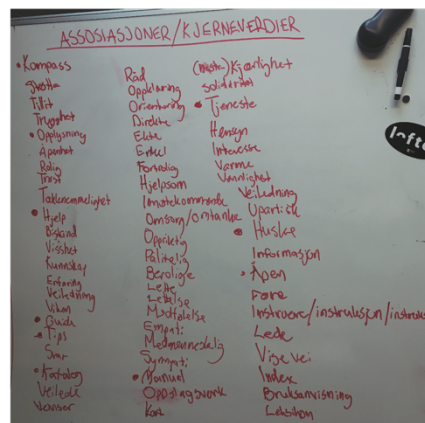 ASSOSIASJONER/KJERNEVERDIER
• Kompass
Støtte
Tillit
Trygghet
• Opplysning
Åpenhet
Rolig
Trøst
Taknemmelighet
• Hjelp
Bistand
Visshet
Kunnskap
Erfaring
Veiledning
Viten
• Guide
• Tips
Svar
• Katalog
Veilede
Råd
Oppklaring
Orientering
Direkte
Ekte
Enkel
Fortrolig
Hjelpsom
Imøtekommende
Omsorg/omtanke
Oppriktig
Pålitelig
Berolige
Lette
Lettelse
Medfølelse
Empati
Medmenneskelig
Sympati
• Manual
Oppslagsverk
Kart
(Neste-)Kjærlighet
Solidaritet
• Tjeneste
Hensyn
Interesse
Varme
Vennlighet
Veiledning
Upartisk
• Huske
Informasjon
• Åpen
Føre
Instruere/instruksjon/instruks
Lede
Vise vei
Index
Bruksanvisning
Leksikon